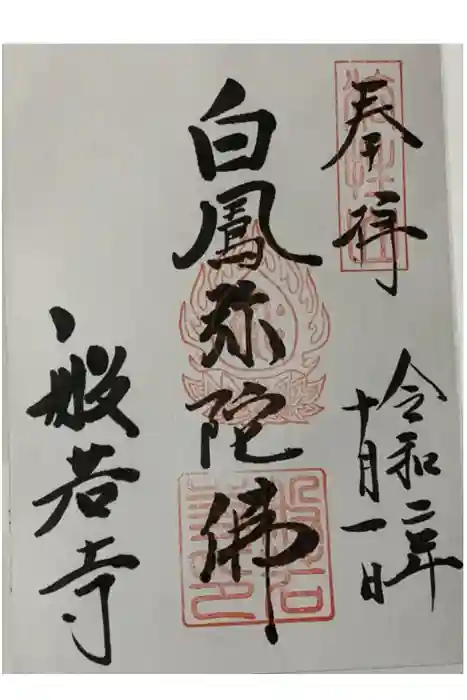 奉拝
令和二年
十月一日
白鳳弥陀佛
般若寺